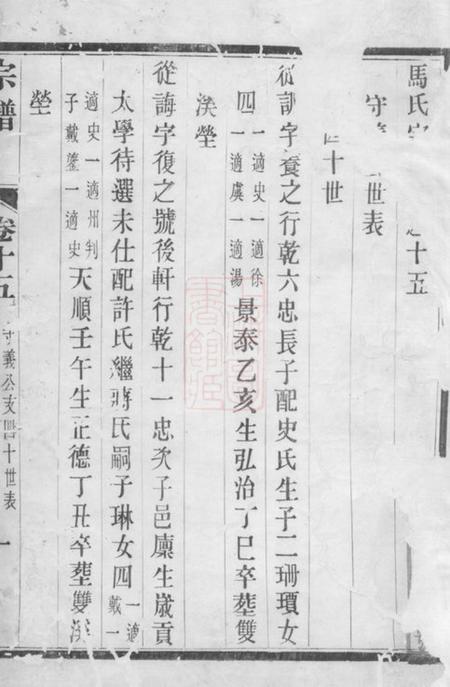 馬氏
十五
守 世表
十世
從訓字養之行乾六忠長子配史氏生子二珊瓆女
四一適史一適徐一適虞一適湯景泰乙亥生弘治丁巳卒葬雙
渓塋
從誨字復之號後軒行乾十一忠次子邑廩生歲貢
太學待選未仕配許氏繼蔣氏嗣子琳女四一適戴一
適史一適州判子戴鏊一適史天順壬午生正德丁丑卒葬雙渓
塋
宗譜 卷十五 守義公支 十世表 一